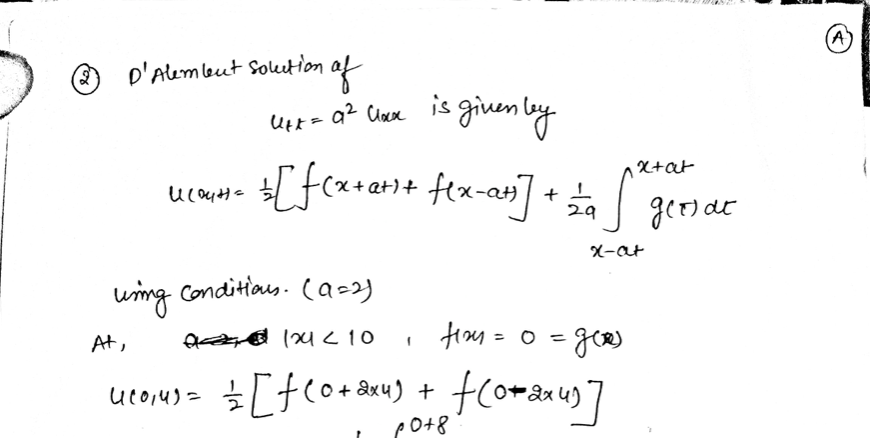 (A)
(2) D'Alembert solution of
u_tt = a² u_xx is given by
u(x,t) = 1/2 [f(x+at) + f(x-at)] + 1/2a ∫_{x-at}^{x+at} g(τ) dτ
using conditions. (a=2)
At, |x| < 10 , f(x) = 0 = g(x)
u(0,4) = 1/2 [f(0+2x4) + f(0-2x4)]
0+8